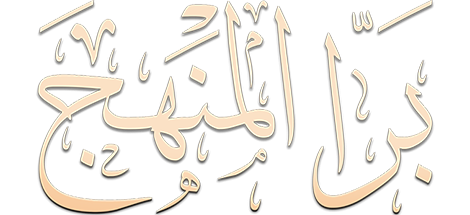 بَرَّا الْمَنْهَجِ